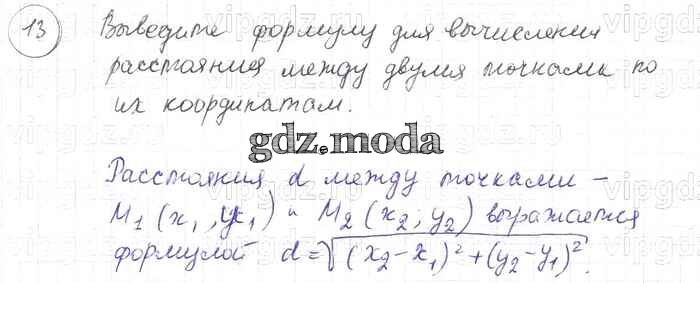 13 Выведите формулу для вычисления
расстояния между двумя точками по
их координатам.
gdz.moda
Расстояния d между точками –
M₁ (x₁, y₁) и M₂ (x₂; y₂) выражается
формулой d=√(x₂-x₁)²+(y₂-y₁)².